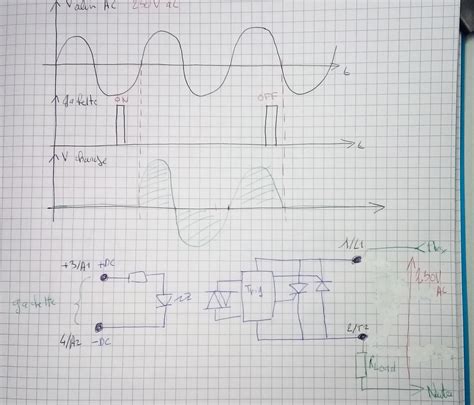 V alim AC 230V ac
t
gachette
ON
OFF
t
V charge
+3/A1 +DC
gachette
4/A2 -DC
Trig
1/L1
230V
AC
2/T2
RLoad
Neutre